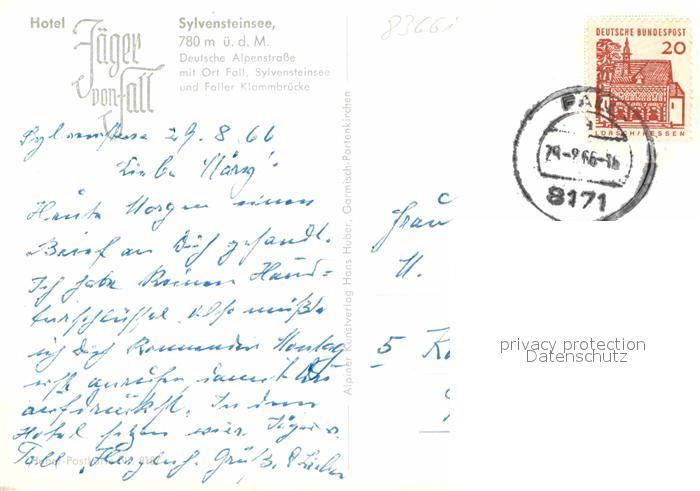 Hotel
Jäger
von Fall
Sylvensteinsee,
780 m ü. d. M.
Deutsche Alpenstraße
mit Ort Fall, Sylvensteinsee
und Faller Klammbrücke
8366i
DEUTSCHE BUNDESPOST
20
LORSCH/HESSEN
FALL
29.-8.66-16
8171
29. 8. 66
Liebe
Heute Morgen einen
Brief an Dich gesandt.
Ich habe keinen
also müßte
ich Dich kommenden Montag
anrufen damit Du
In dem
Hotel sitzen wir. Jäger v.
Fall. Herzlich. Grüß.
Alpiner Kunstverlag Hans Huber, Garmisch-Partenkirchen
Frau
U.
5
privacy protection
Datenschutz